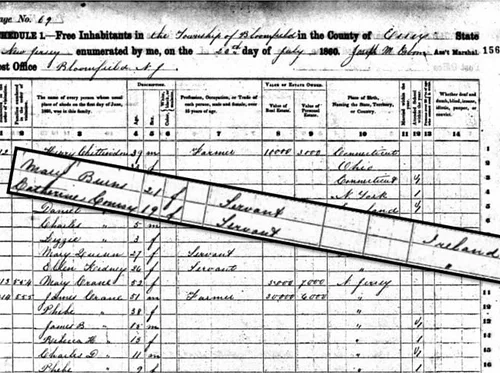 Page No. 69
SCHEDULE 1.—Free Inhabitants in the Township of Bloomfield in the County of Essex State
New Jersey enumerated by me, on the 20th day of July 1860. Joseph M. Ass't Marshal. 156
Post Office Bloomfield N.J.
The name of every person whose usual place of abode on the first day of June, 1860, was in this family.
DESCRIPTION.
Age.
Sex.
Profession, Occupation, or Trade of each person, male and female, over 15 years of age.
VALUE OF ESTATE OWNED.
Value of Real Estate.
Value of Personal Estate.
Place of Birth, Naming the State, Territory, or Country.
Whether deaf and dumb, blind, insane, idiotic, pauper, or convict.
1 2 3 4 5 6 7 8 9 10 11 12 13 14
Henry Chittenden 39 m Farmer 10000 3000 Connecticut
Ohio
Connecticut
N York
Mary Burns 21 f Servant Ireland
Catherine Conroy 19 f Servant "
Daniel
Charles 5 m
Lizzie 3 f
Mary Queen 27 f Servant
Ellen Kidney 26 f Servant
Mary Crane 52 f 7000 N Jersey
James Crane 51 m Farmer 30000 6000 " 11
Phebe 38 f " 12
James B. 15 m " 13
Rebecca H. 13 f " 14
Charles D. 11 m " 15
Phebe 9 f " 16